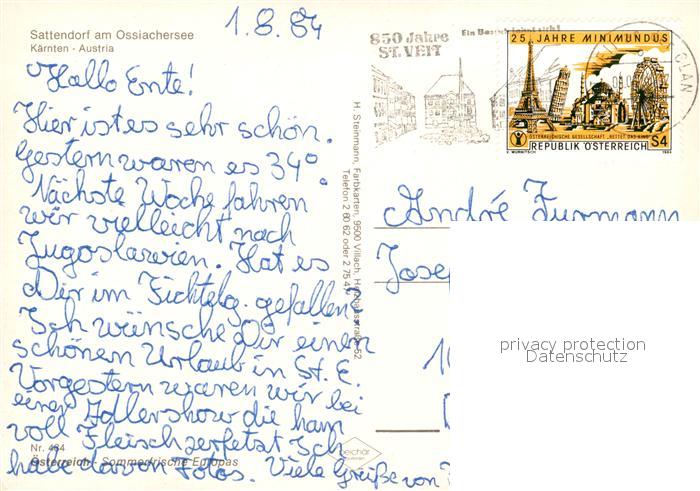 Sattendorf am Ossiachersee
Kärnten - Austria
1.8.84
Hallo Ente!
Hier ist es sehr schön.
Gestern waren es 34°.
Nächste Woche fahren
wir vielleicht nach
Jugoslawien. Hat es
Dir im Fichtelg. gefallen?
Ich wünsche Dir einen
schönen Urlaub in St. E.
Vorgestern waren wir bei
einer Adlershow die ham
voll Fleisch zerfetzt Ich
habe davon Fotos. Viele Grüße von
Nr. 484
Österreich - Sommerfrische Europas
H. Steinmann, Farbkarten, 9500 Villach,
Telefon 2 60 62 oder 2 75 4
850 Jahre
ST. VEIT
Ein Besuch lohnt sich!
25 JAHRE MINIMUNDUS
ÖSTERREICHISCHE GESELLSCHAFT „RETTET DAS KIND"
REPUBLIK ÖSTERREICH S4
1984
André Furmann
Jose
privacy protection
Datenschutz